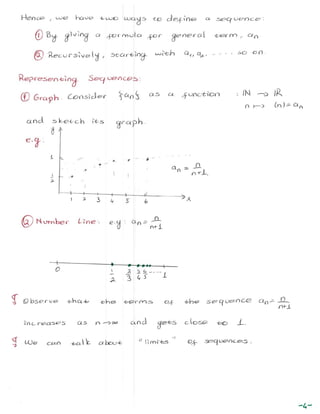 Hence, we have two ways to define a sequence:
① By giving a formula for general term, an
② Recursively, starting with a1, a2, ..... so on.
Representing Sequences:
① Graph. Consider {an} as a function : IN → IR
n ↦ (n) = an
and sketch its graph.
e.g.
y
1
1
2
an = n
n+1
1 2 3 4 5 6 x
② Number Line: e.g. an = n
n+1
0 1 2 3 4 .... 1
2 3 4 5
Observe that the terms of the sequence an = n
n+1
increases as n→∞ and gets close to 1.
We can talk about "limits" of sequences.
-4-